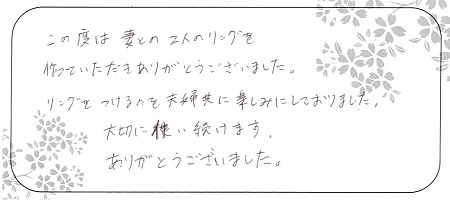 この度は 妻との 2人のリングを
作っていただきありがとうございました。
リングをつけるのを夫婦共に楽しみにしておりました。
大切に使い続けます。
ありがとうございました。